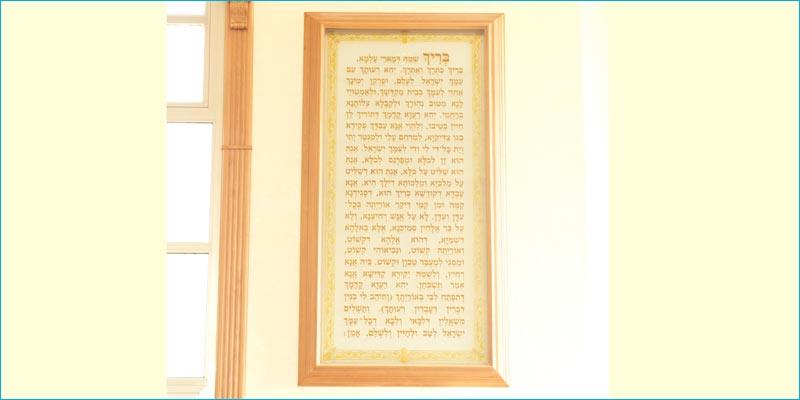 בְּרִיךְ שְׁמֵהּ דְּמָארֵי עָלְמָא,
בְּרִיךְ כִּתְרָךְ וְאַתְרָךְ. יְהֵא רְעוּתָךְ עִם
עַמָּךְ יִשְׂרָאֵל לְעָלַם, וּפֻרְקַן יְמִינָךְ
אַחֲזֵי לְעַמָּךְ בְּבֵית מִקְדְּשָׁךְ, וּלְאַמְטוּיֵי
לָנָא מִטּוּב נְהוֹרָךְ וּלְקַבְּלָא צְלוֹתָנָא
בְּרַחֲמִין. יְהֵא רַעֲוָא קֳדָמָךְ דְּתוֹרִיךְ לָן
חַיִּין בְּטִיבוּ, וְלֶהֱוֵי אֲנָא עַבְדָּךְ פְּקִידָא
בְּגוֹ צַדִּיקַיָּא, לְמִרְחַם עָלַי וּלְמִנְטַר יָתִי
וְיָת כָּל־דִּי לִי וְדִי לְעַמָּךְ יִשְׂרָאֵל. אַנְתְּ
הוּא זָן לְכֹלָּא וּמְפַרְנֵס לְכֹלָּא, אַנְתְּ
הוּא שַׁלִּיט עַל כֹּלָּא, אַנְתְּ הוּא דְשַׁלִּיט
עַל מַלְכַיָּא וּמַלְכוּתָא דִילָךְ הִיא. אֲנָא
עַבְדָּא דְקוּדְשָׁא בְּרִיךְ הוּא, דְּסָגִידְנָא
קַמֵּהּ וּמִן קַמֵּי דִּיקַר אוֹרַיְתֵהּ בְּכָל־
עִדָּן וְעִדָּן. לָא עַל אֱנָשׁ רָחִיצְנָא, וְלָא
עַל בַּר אֱלָהִין סָמִיכְנָא, אֶלָּא בֶּאֱלָהָא
דִשְׁמַיָּא, דְּהוּא אֱלָהָא דִקְשׁוֹט,
וְאוֹרַיְתֵהּ קְשׁוֹט, וּנְבִיאוֹהִי קְשׁוֹט,
וּמַסְגֵּי לְמֶעְבַּד טַבְוָן וּקְשׁוֹט. בֵּיהּ אֲנָא
רָחִיץ, וְלִשְׁמֵהּ יַקִּירָא קַדִּישָׁא אֲנָא
אֵמַר תֻּשְׁבְּחָן. יְהֵא רַעֲוָא קֳדָמָךְ
דְּתִפְתַּח לִבִּי בְּאוֹרַיְתָךְ (וְתֵיהַב לִי בְּנִין
דִּכְרִין דְּעָבְדִין רְעוּתָךְ). וְתַשְׁלִים
מִשְׁאֲלִין דְּלִבָּאי וְלִבָּא דְכָל־עַמָּךְ
יִשְׂרָאֵל לְטַב וּלְחַיִּין וְלִשְׁלָם, אָמֵן: